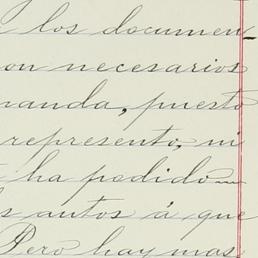 los documen-
on necesarios
manda, puesto
represento, ni
ha pedido
s autos á que
Pero hay mas